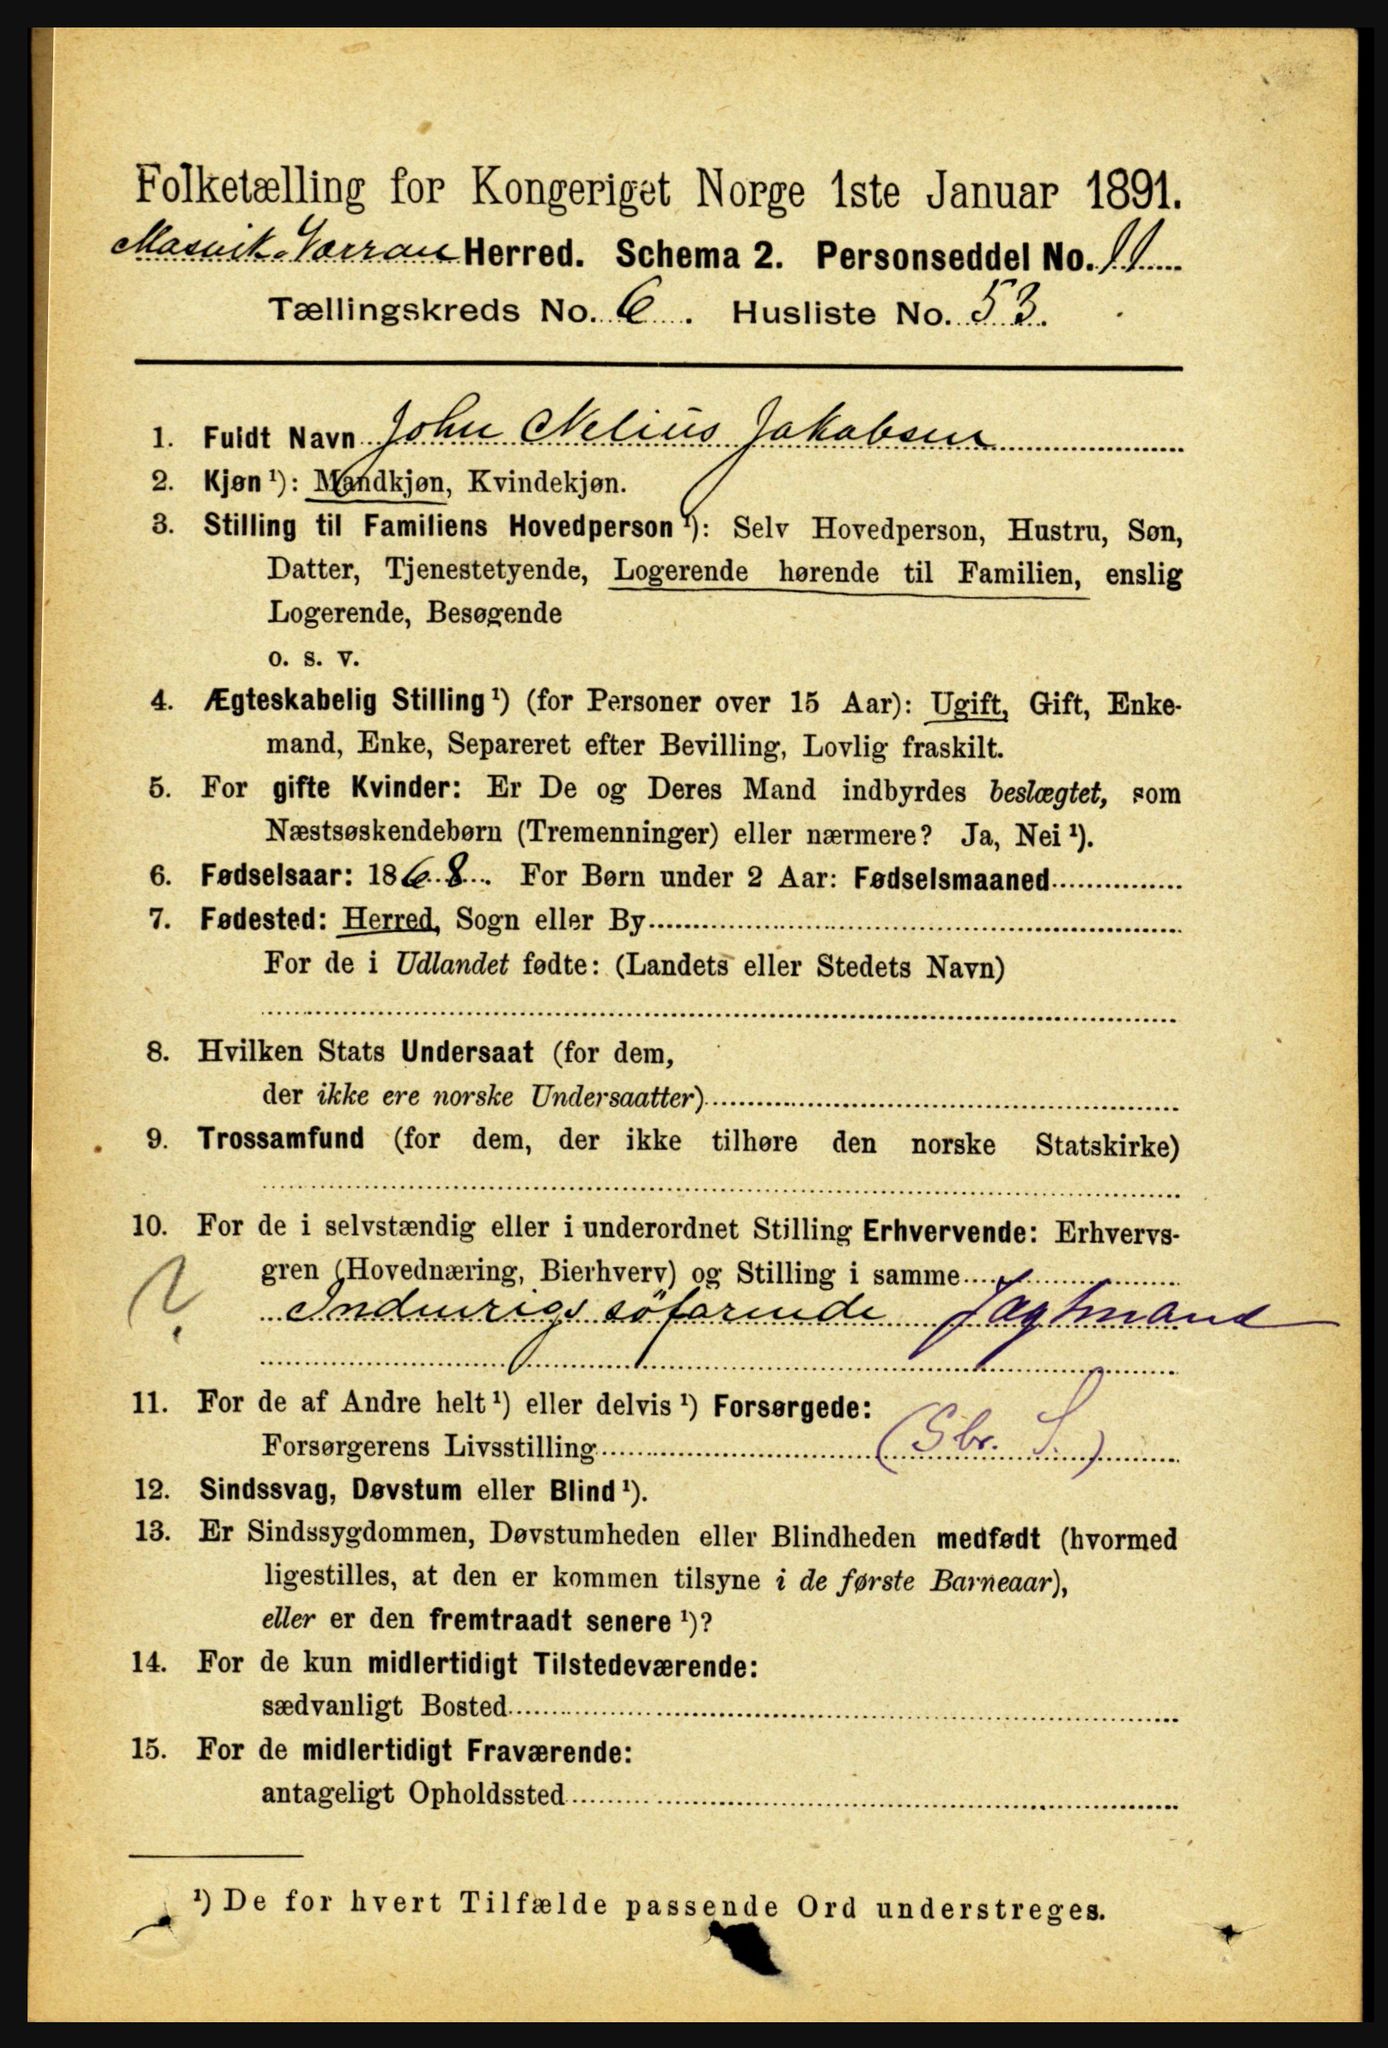 Folketælling for Kongeriget Norge 1ste Januar 1891.
Mosvik-Værran Herred. Schema 2. Personseddel No. 11
Tællingskreds No. 6. Husliste No. 53.
1. Fuldt Navn John Nelius Jakobsen
2. Kjøn ¹): Mandkjøn, Kvindekjøn.
3. Stilling til Familiens Hovedperson ¹): Selv Hovedperson, Hustru, Søn,
Datter, Tjenestetyende, Logerende hørende til Familien, enslig
Logerende, Besøgende
o. s. v.
4. Ægteskabelig Stilling ¹) (for Personer over 15 Aar): Ugift, Gift, Enke-
mand, Enke, Separeret efter Bevilling, Lovlig fraskilt.
5. For gifte Kvinder: Er De og Deres Mand indbyrdes beslægtet, som
Næstsøskendebørn (Tremenninger) eller nærmere? Ja, Nei ¹).
6. Fødselsaar: 1868. For Børn under 2 Aar: Fødselsmaaned
7. Fødested: Herred, Sogn eller By
For de i Udlandet fødte: (Landets eller Stedets Navn)
8. Hvilken Stats Undersaat (for dem,
der ikke ere norske Undersaatter)
9. Trossamfund (for dem, der ikke tilhøre den norske Statskirke)
10. For de i selvstændig eller i underordnet Stilling Erhvervende: Erhvervs-
gren (Hovednæring, Bierhverv) og Stilling i samme
? Indenrigs søfarende Jagtmand
11. For de af Andre helt ¹) eller delvis ¹) Forsørgede:
Forsørgerens Livsstilling (Sbr. S.)
12. Sindssvag, Døvstum eller Blind ¹).
13. Er Sindssygdommen, Døvstumheden eller Blindheden medfødt (hvormed
ligestilles, at den er kommen tilsyne i de første Barneaar),
eller er den fremtraadt senere ¹)?
14. For de kun midlertidigt Tilstedeværende:
sædvanligt Bosted
15. For de midlertidigt Fraværende:
antageligt Opholdssted
¹) De for hvert Tilfælde passende Ord understreges.